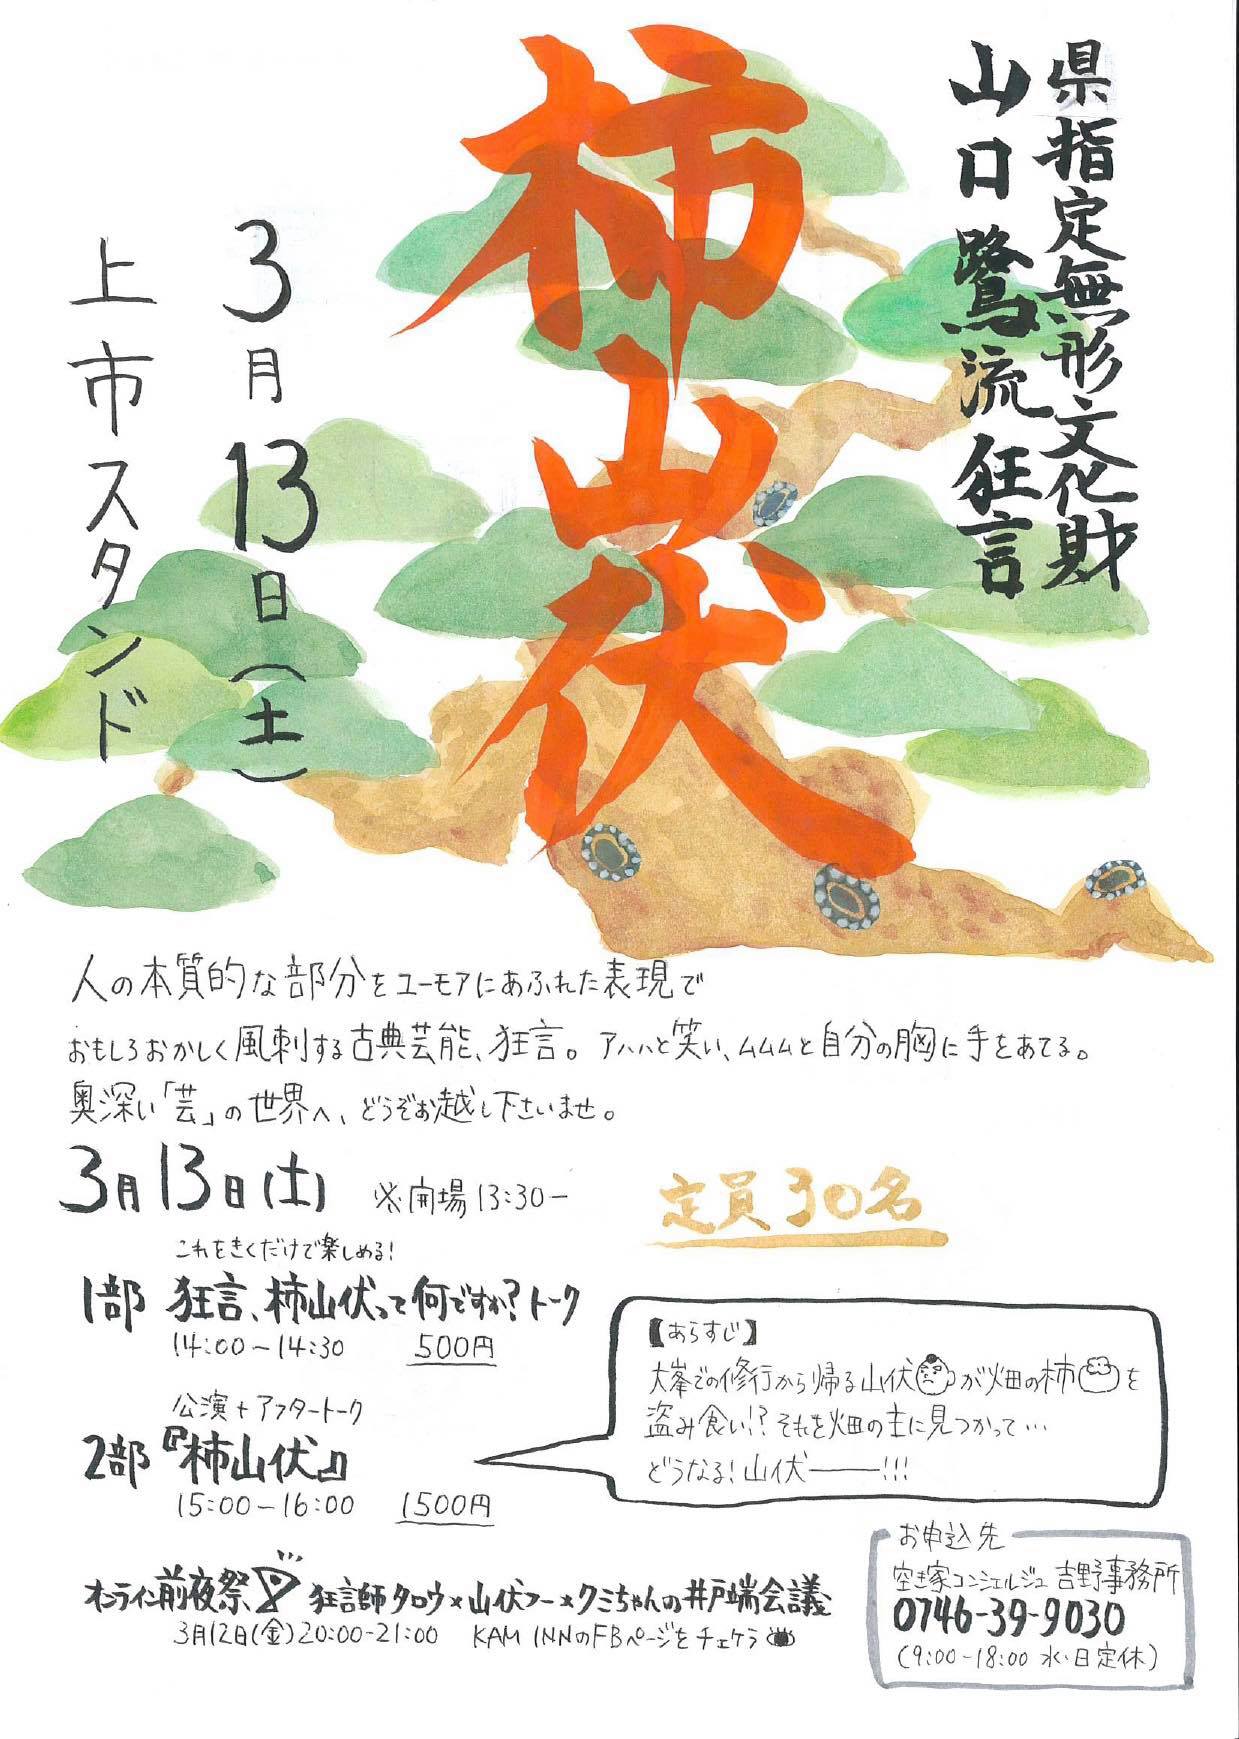 県指定無形文化財
山口鷺流狂言
柿山伏
3月13日(土)
上市スタンド
人の本質的な部分をユーモアにあふれた表現で
おもしろおかしく風刺する古典芸能、狂言。アハハと笑い、ムムムと自分の胸に手をあてる。
奥深い「芸」の世界へ、どうぞお越し下さいませ。
3月13日(土) ※開場13:30ー
定員30名
これをきくだけで楽しめる!
1部 狂言、柿山伏って何ですか?トーク
14:00〜14:30 500円
公演+アフタートーク
2部『柿山伏』
15:00ー16:00 1500円
【あらすじ】
大峯での修行から帰る山伏が畑の柿を
盗み食い!?それを畑の主に見つかって…
どうなる!山伏――!!!
オンライン前夜祭 狂言師タロウ×山伏フー×クミちゃんの井戸端会議
3月12日(金)20:00-21:00 KAM INNのFBページをチェケラ
お申込先
空き家コンシェルジュ 吉野事務所
0746-39-9030
(9:00-18:00 水・日定休)